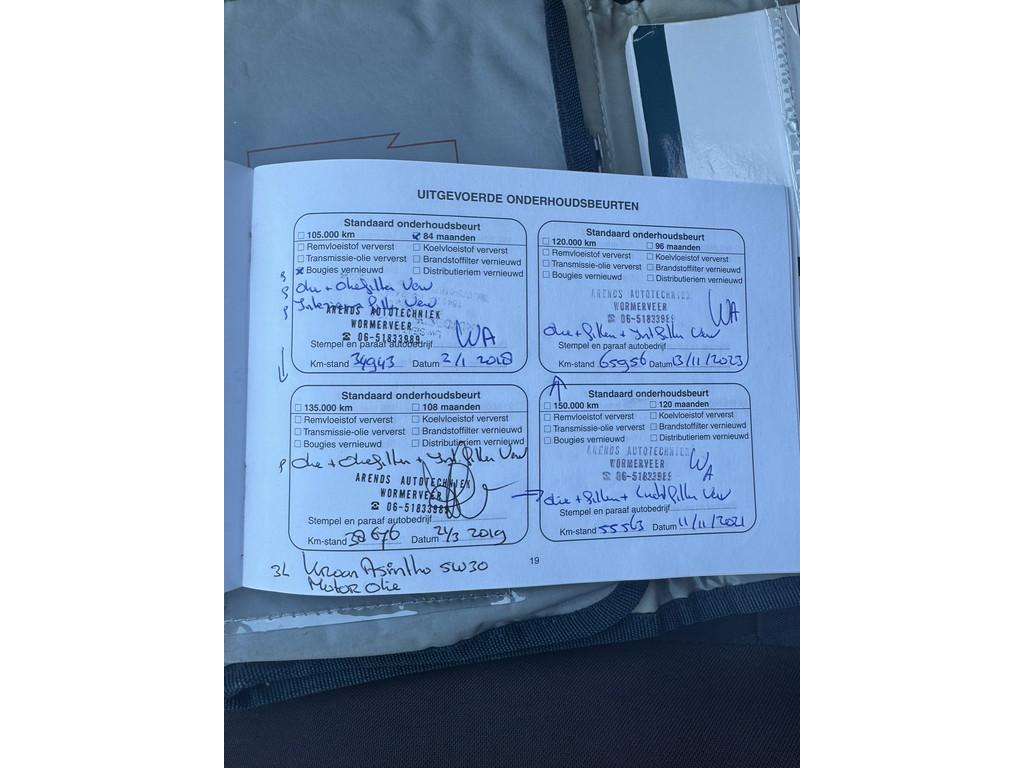 UITGEVOERDE ONDERHOUDSBEURTEN
Standaard onderhoudsbeurt
105.000 km 84 maanden
Remvloeistof ververst Koelvloeistof ververst
Transmissie-olie ververst Brandstoffilter vernieuwd
Bougies vernieuwd Distributieriem vernieuwd
Olie + Oliefilter Vern
Interieur Filter Vern
ARENDS AUTOTECHNIEK
WORMERVEER
☎ 06-51833989
Stempel en paraaf autobedrijf WA
Km-stand 34943 Datum 2/1 2018
Standaard onderhoudsbeurt
120.000 km 96 maanden
Remvloeistof ververst Koelvloeistof ververst
Transmissie-olie ververst Brandstoffilter vernieuwd
Bougies vernieuwd Distributieriem vernieuwd
ARENDS AUTOTECHNIEK
WORMERVEER WA
☎ 06-51833989
Olie + Filter + Int Filter Vern
Stempel en paraaf autobedrijf
Km-stand 65956 Datum 13/11/2023
Standaard onderhoudsbeurt
135.000 km 108 maanden
Remvloeistof ververst Koelvloeistof ververst
Transmissie-olie ververst Brandstoffilter vernieuwd
Bougies vernieuwd Distributieriem vernieuwd
Olie + Oliefilter + Int Filter Vern
ARENDS AUTOTECHNIEK
WORMERVEER
☎ 06-51833989
Stempel en paraaf autobedrijf
Km-stand 38676 Datum 21/3 2019
Standaard onderhoudsbeurt
150.000 km 120 maanden
Remvloeistof ververst Koelvloeistof ververst
Transmissie-olie ververst Brandstoffilter vernieuwd
Bougies vernieuwd Distributieriem vernieuwd
ARENDS AUTOTECHNIEK
WORMERVEER WA
☎ 06-51833989
Olie + Filter + Luchtfilter Vern
Stempel en paraaf autobedrijf
Km-stand 55563 Datum 11/11/2021
19
3L Kroon Asintho 5W30
Motor Olie